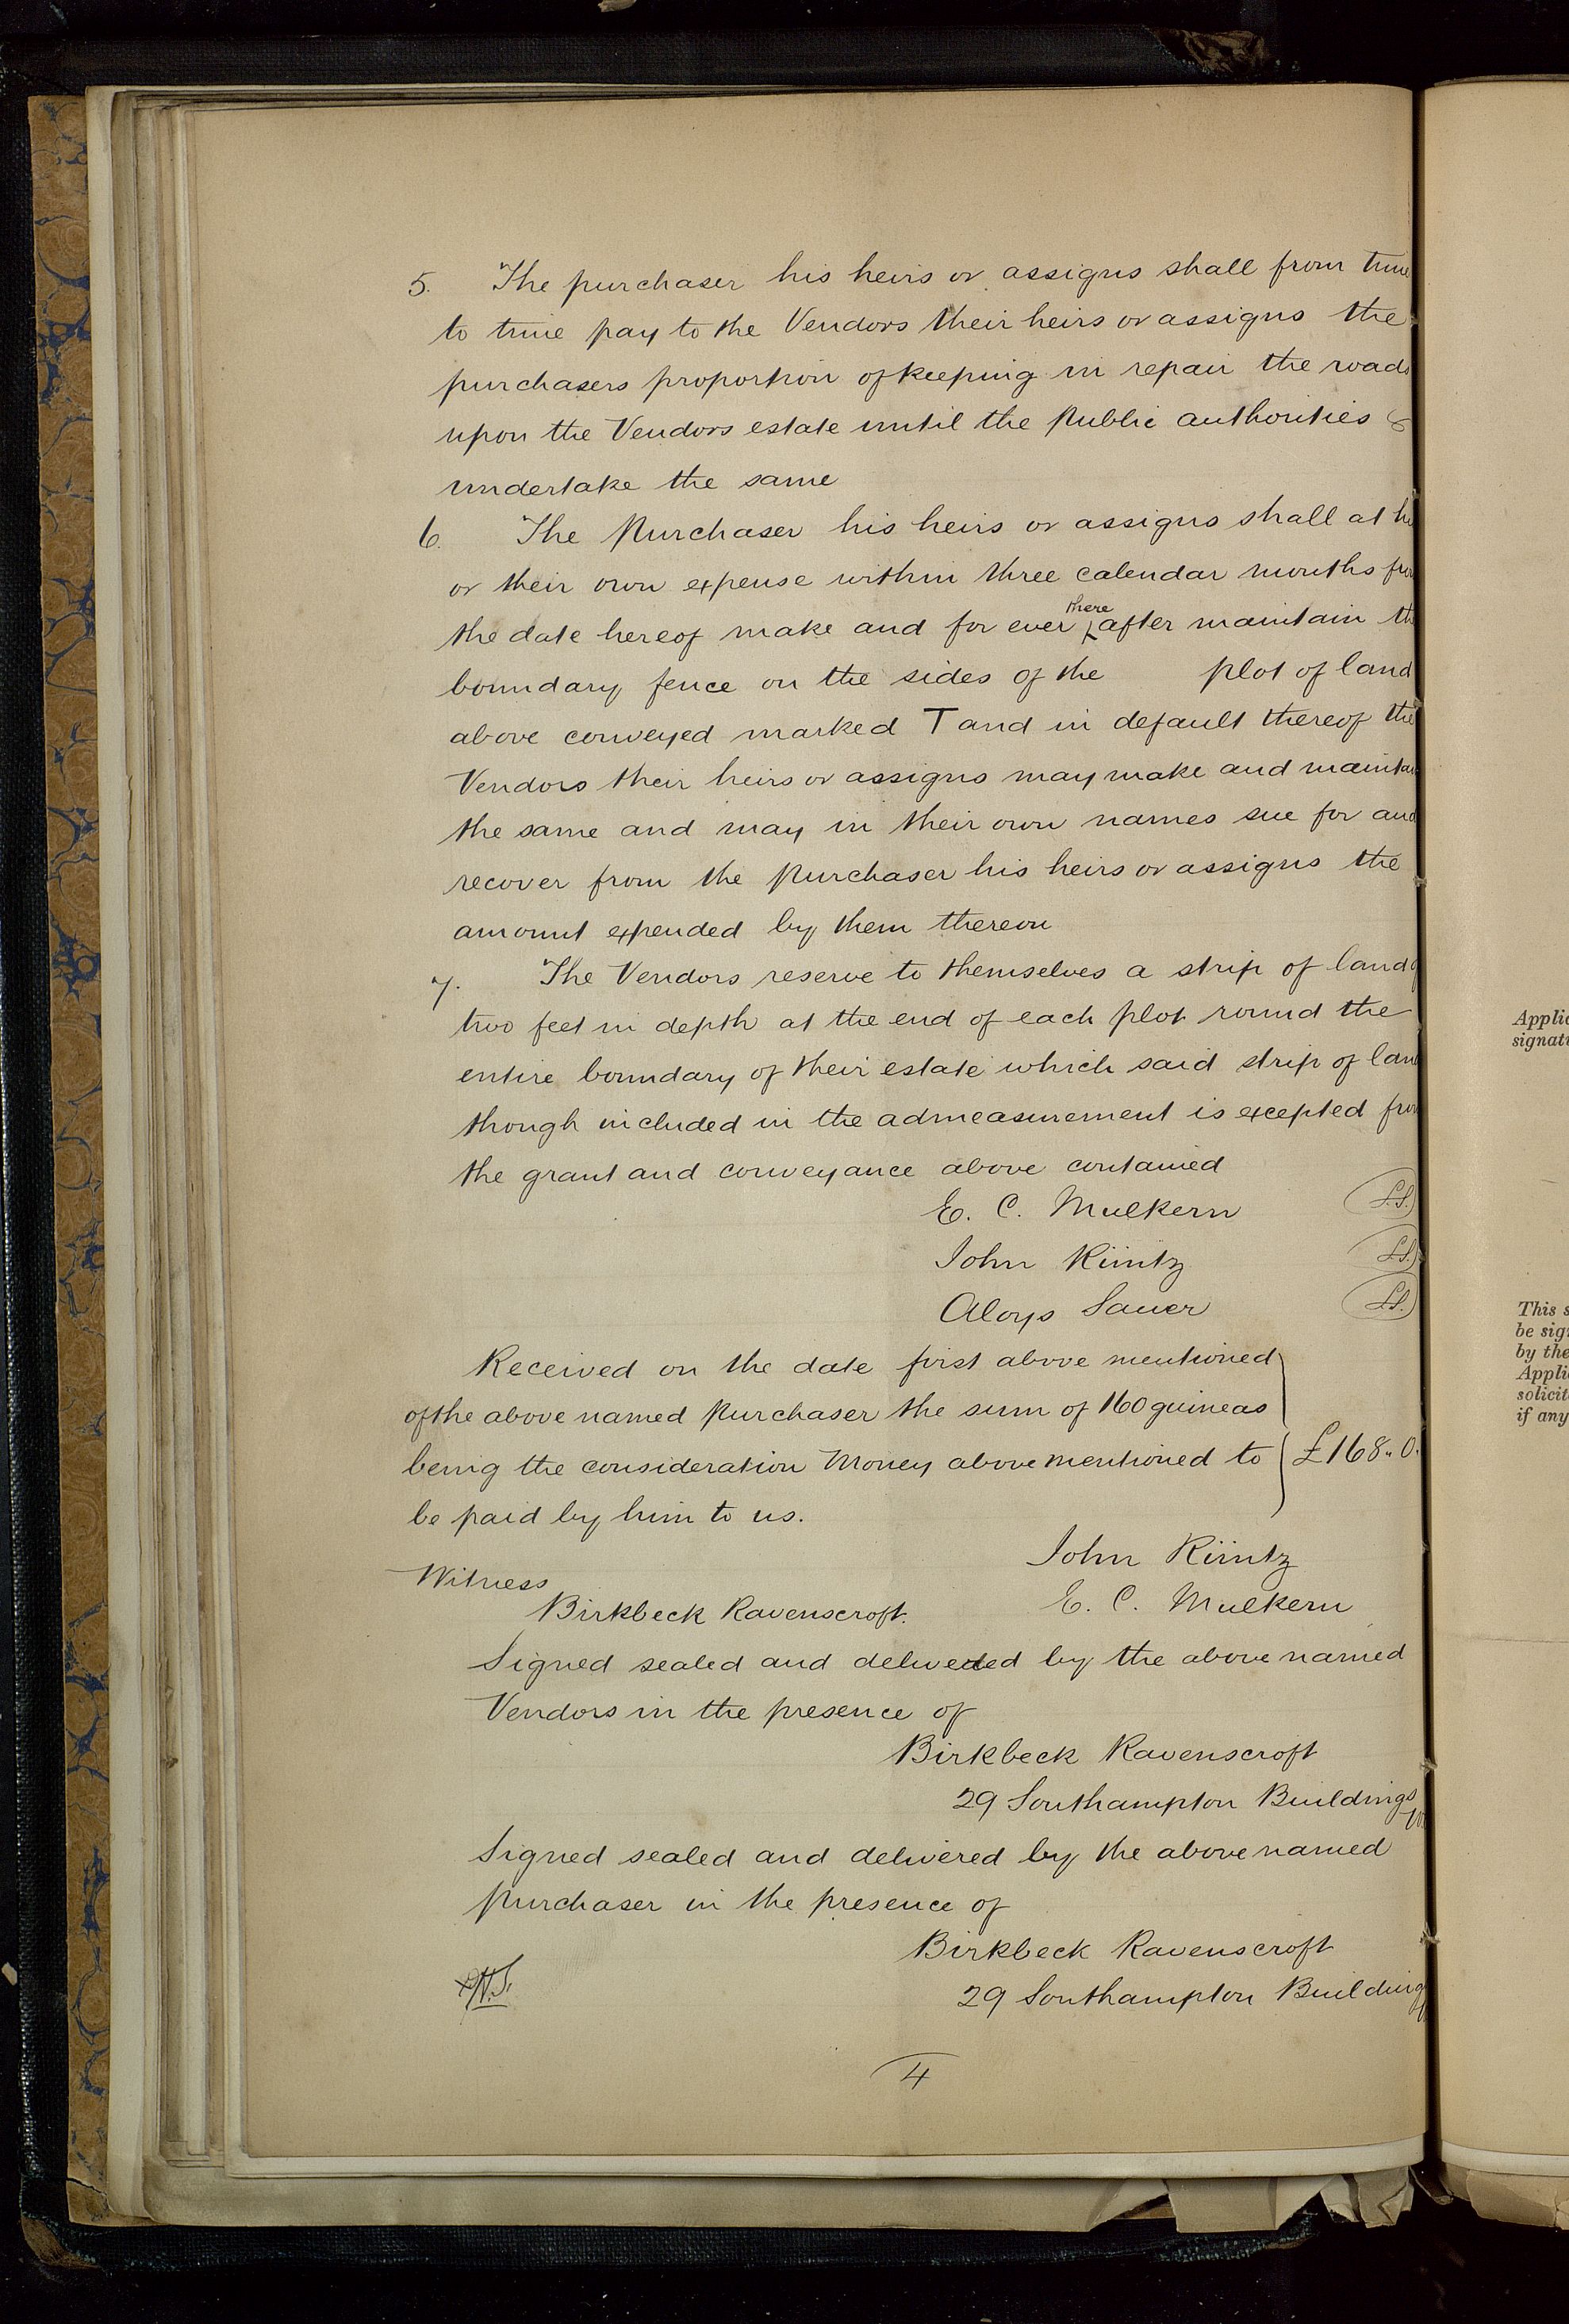 5. The purchaser his heirs or assigns shall from time
to time pay to the Vendors their heirs or assigns the
purchasers proportion of keeping in repair the roads
upon the Vendors estate until the Public authorities
undertake the same
6. The Purchaser his heirs or assigns shall at his
or their own expense within three calendar months from
the date hereof make and for ever there after maintain the
boundary fence on the sides of the plot of land
above conveyed marked T and in default thereof the
Vendors their heirs or assigns may make and maintain
the same and may in their own names sue for and
recover from the Purchaser his heirs or assigns the
amount expended by them thereon
7. The Vendors reserve to themselves a strip of land
two feet in depth at the end of each plot round the
entire boundary of their estate which said strip of land
though included in the admeasurement is excepted from
the grant and conveyance above contained
E. C. Mulkern L.S.
John Küntz L.S.
Aloys Sauer L.S.
Received on the date first above mentioned
of the above named Purchaser the sum of 160 guineas
being the consideration Money above mentioned to £168.. 0.
be paid by him to us.
John Küntz
Witness
Birkbeck Ravenscroft. E. C. Mulkern
Signed sealed and delivered by the above named
Vendors in the presence of
Birkbeck Ravenscroft
29 Southampton Buildings
Signed sealed and delivered by the above named
Purchaser in the presence of
Birkbeck Ravenscroft
29 Southampton Building
4
Applic
signat
This s
be sig
by the
Appli
solicit
if any